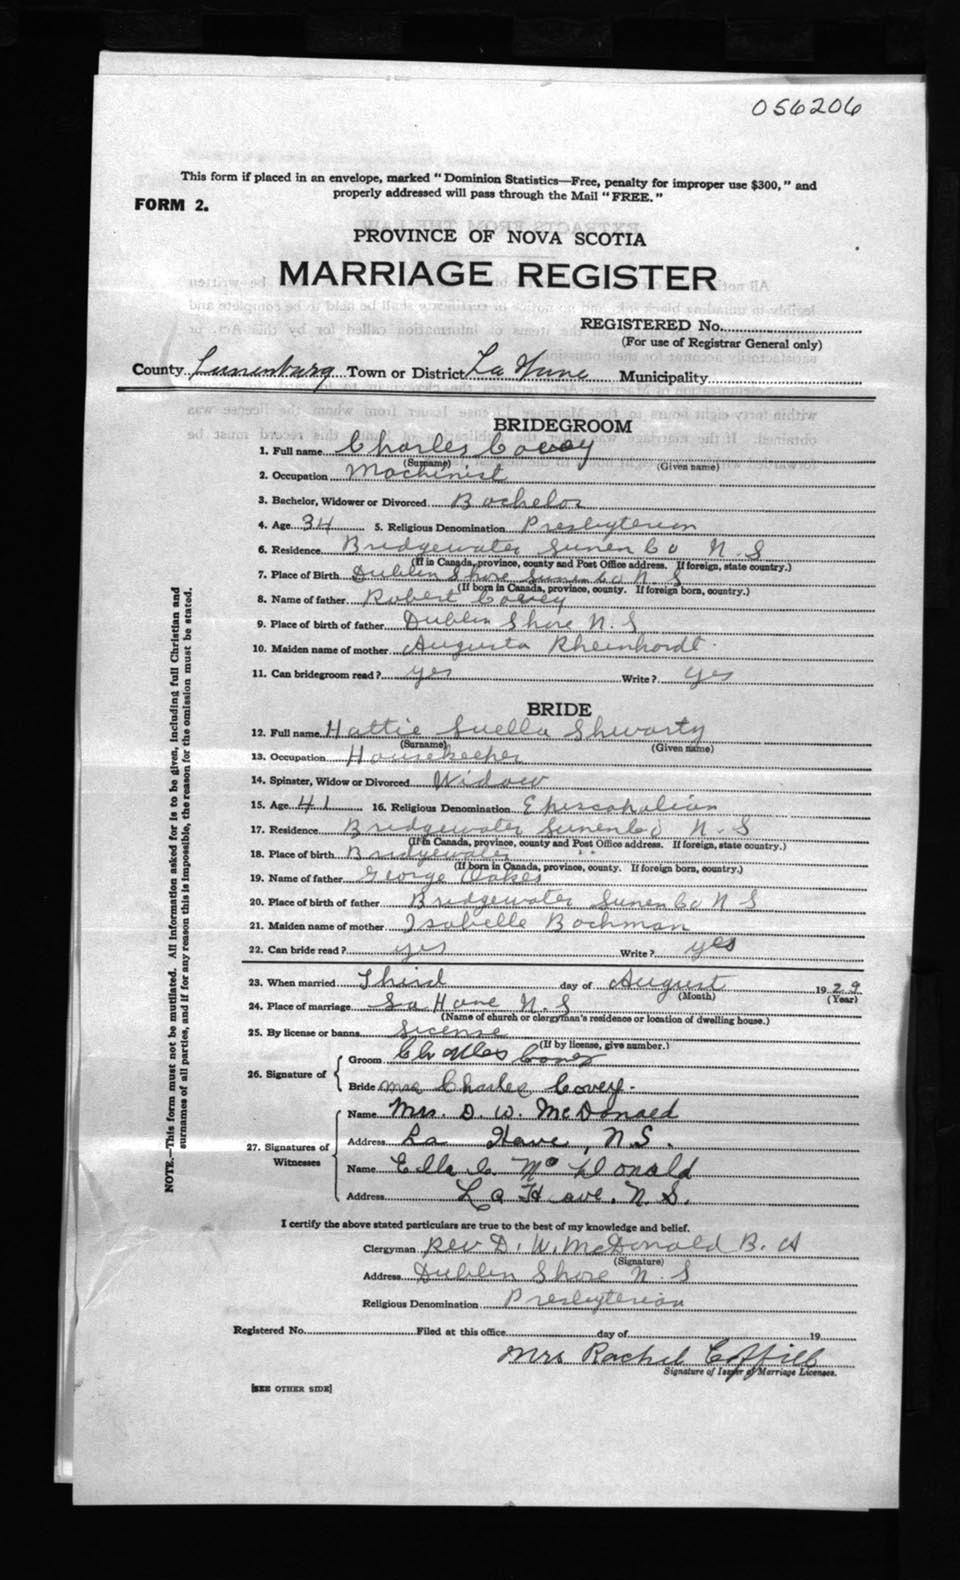 056206
This form if placed in an envelope, marked "Dominion Statistics—Free, penalty for improper use $300," and
properly addressed will pass through the Mail "FREE."
FORM 2.
PROVINCE OF NOVA SCOTIA
MARRIAGE REGISTER
REGISTERED No.
(For use of Registrar General only)
County Lunenburg Town or District La Have Municipality
BRIDEGROOM
1. Full name Charles Covey
(Surname) (Given name)
2. Occupation Machinist
3. Bachelor, Widower or Divorced Bachelor
4. Age 34 5. Religious Denomination Presbyterian
6. Residence Bridgewater Lunen Co N.S
(If in Canada, province, county and Post Office address. If foreign, state country.)
7. Place of Birth Dublin Shore Lunen Co N.S
(If born in Canada, province, county. If foreign born, country.)
8. Name of father Robert Covey
9. Place of birth of father Dublin Shore N.S
10. Maiden name of mother Augusta Rheinhardt
11. Can bridegroom read? yes Write? yes
BRIDE
12. Full name Hattie Luella Shwarty
(Surname) (Given name)
13. Occupation Housekeeper
14. Spinster, Widow or Divorced Widow
15. Age 41 16. Religious Denomination Episcopalian
17. Residence Bridgewater Lunen Co N.S
(If in Canada, province, county and Post Office address. If foreign, state country.)
18. Place of birth Bridgewater " "
(If born in Canada, province, county. If foreign born, country.)
19. Name of father George Oakes
20. Place of birth of father Bridgewater Lunen Co N S
21. Maiden name of mother Isabelle Bachman
22. Can bride read? yes Write? yes
23. When married Third day of August 1929
(Month) (Year)
24. Place of marriage La Have N.S
(Name of church or clergyman's residence or location of dwelling house.)
25. By license or banns License
(If by license, give number.)
26. Signature of
Groom Charles Covey
Bride Mrs Charles Covey.
27. Signatures of Witnesses
Name Mrs. D. W. McDonald
Address La Have, N.S.
Name Ella C. McDonald
Address La Have, N.S.
I certify the above stated particulars are true to the best of my knowledge and belief.
Clergyman Rev D. W. McDonald B. A
(Signature)
Address Dublin Shore N.S
Religious Denomination Presbyterian
Registered No. Filed at this office day of 19
Mrs Rachel Coffill
Signature of Issuer of Marriage Licenses.
[SEE OTHER SIDE]
NOTE.—This form must not be mutilated. All information asked for is to be given, including full Christian and
surnames of all parties, and if for any reason this is impossible, the reason for the omission must be stated.